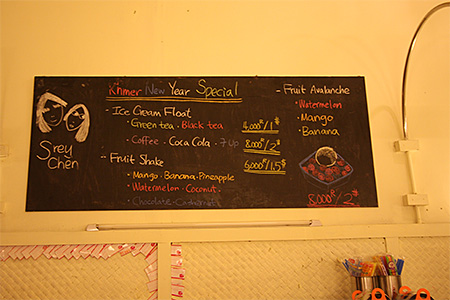 Khmer New Year Special
- Ice Cream Float
· Green tea · Black tea 4,000R/1$
· Coffee · Coca Cola · 7up 8,000R/2$
- Fruit Shake 6,000R/1.5$
· Mango · Banana · Pineapple
· Watermelon · Coconut
· Chocolate ·
- Fruit Avalanche
· Watermelon
· Mango
· Banana
8,000R/2$
Srey
Chen